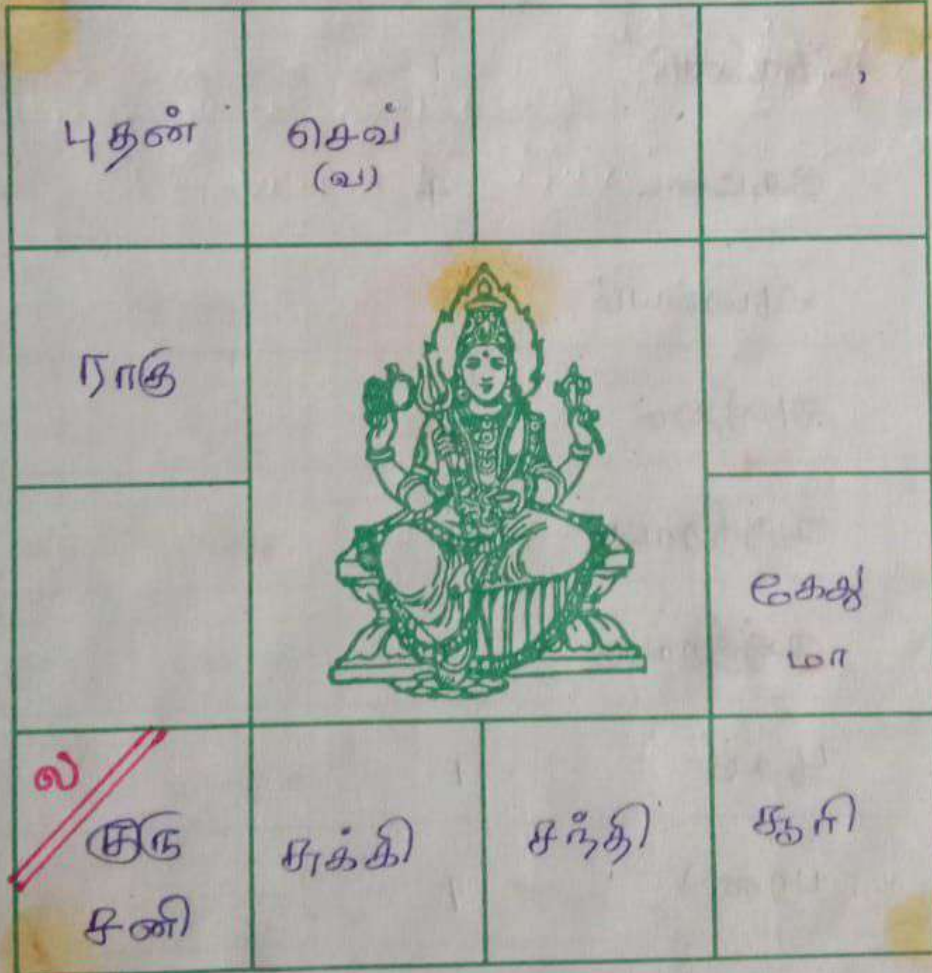 புதன்
செவ்
(வ)
ராகு
கேது
மா
ல
குரு
சனி
சுக்கி
சந்தி
சூரி